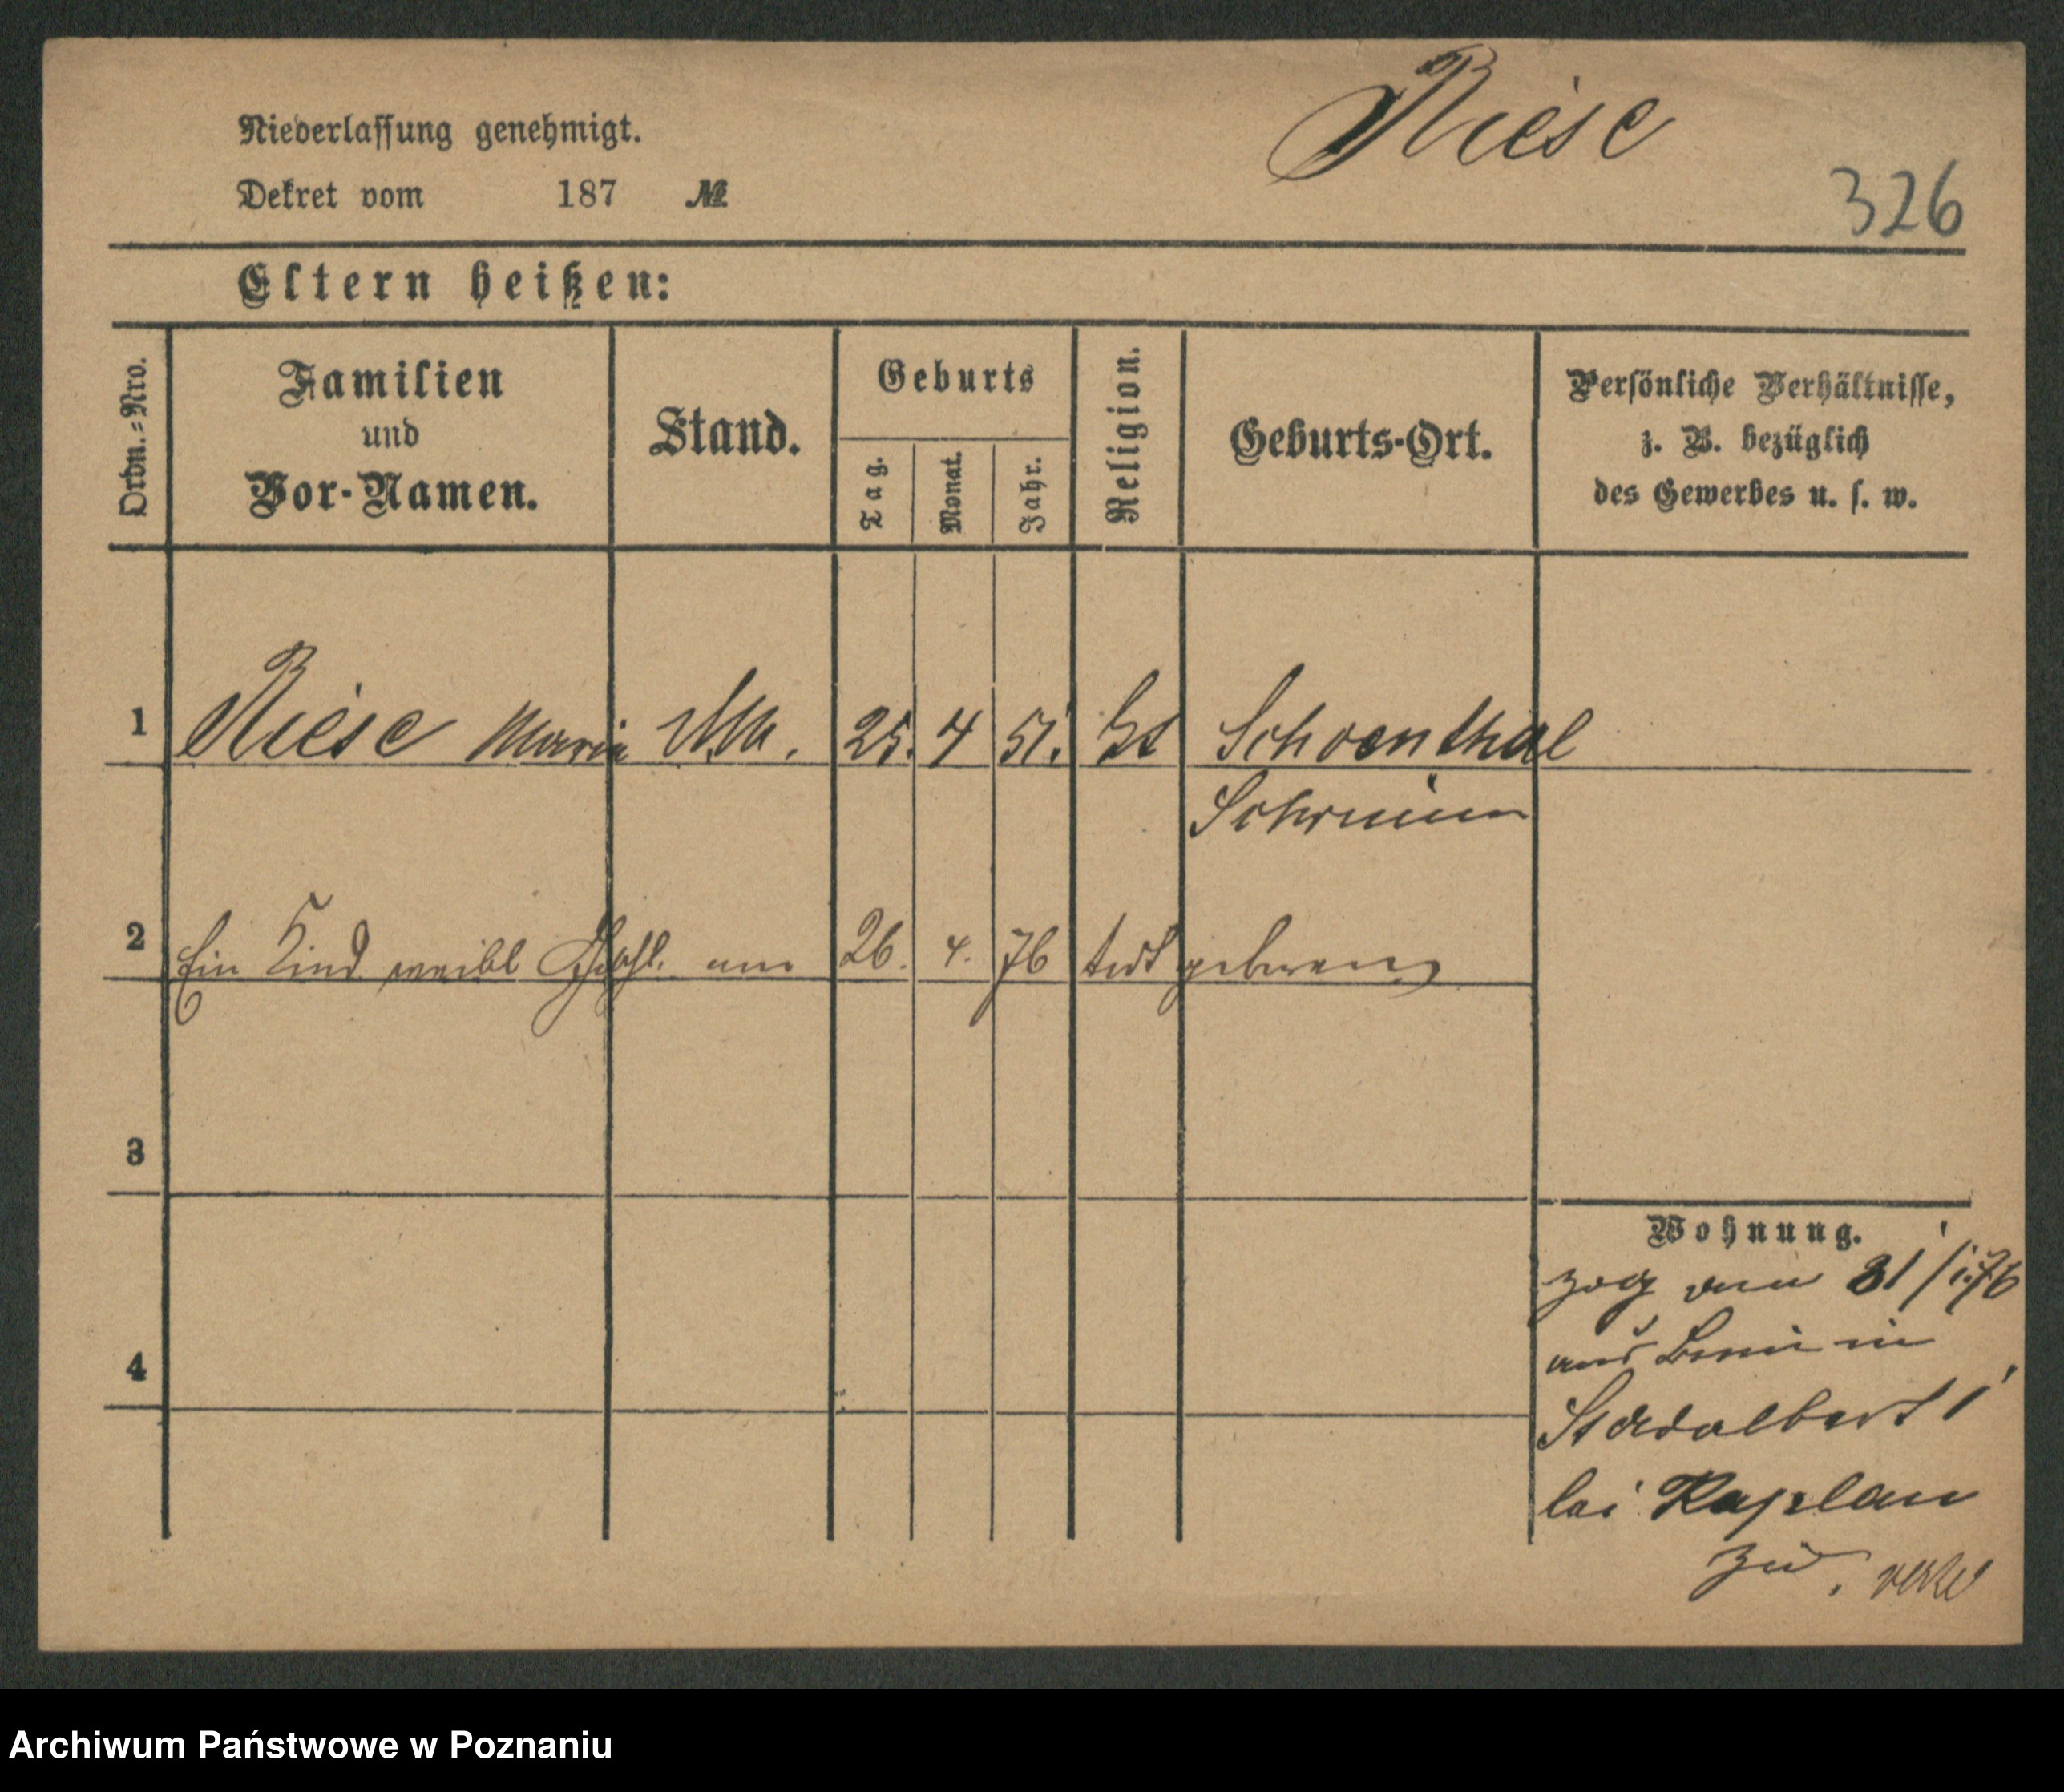 Niederlassung genehmigt.
Riese
Dekret vom 187 №
326
Eltern heißen:
Ordn.-Nro.
Familien
und
Vor-Namen.
Stand.
Geburts
Tag.
Monat.
Jahr.
Religion.
Geburts-Ort.
Persönliche Verhältnisse,
z. B. bezüglich
des Gewerbes u. s. w.
1 Riese Maria 25. 4 51. Schoenthal
Schrimm
2 Ein Kind weibl Geschl. am 26. 4. 76 todt geboren
3
4
Wohnung.
zog von 31/1.76
aus in
St Adalbert 1
bei Kaplan
zu.
Archiwum Państwowe w Poznaniu